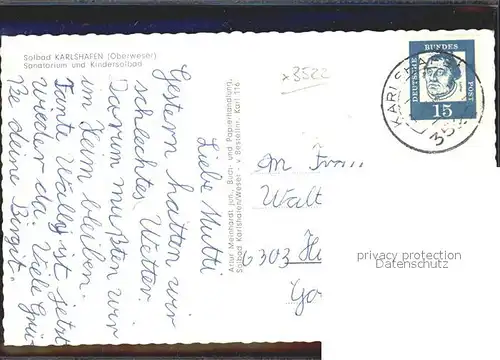 Solbad KARLSHAFEN (Oberweser)
Sanatorium und Kindersolbad
Liebe Mutti
Gestern hatten wir
schlechtes Wetter.
Darum mußten wir
im Heim bleiben.
Tante Wally ist jetzt
wieder da. Viele Grü-
ße deine Birgit.
Artur Meinhardt jun., Buch- und Papierhandlung,
Solbad Karlshafen/Weser · v. Bessel
x3522
DEUTSCHE BUNDES POST
15
KARLSHA
35
An Frau
Walt
6303 
privacy protection
Datenschutz